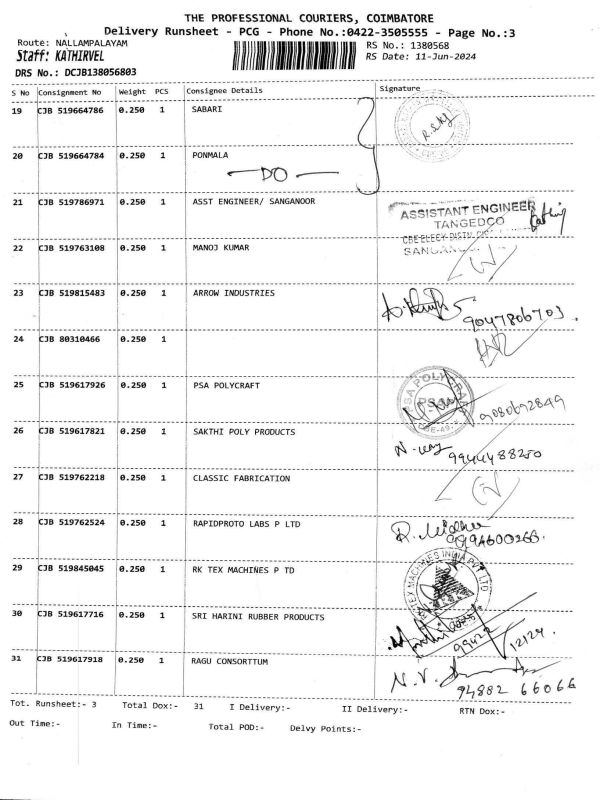 THE PROFESSIONAL COURIERS, COIMBATORE
Delivery Runsheet - PCG - Phone No.:0422-3505555 - Page No.:3
Route: NALLAMPALAYAM RS No.: 1380568
Staff: KATHIRVEL RS Date: 11-Jun-2024
DRS No.: DCJB138056803
S No Consignment No Weight PCS Consignee Details Signature
19 CJB 519664786 0.250 1 SABARI
20 CJB 519664784 0.250 1 PONMALA
DO
21 CJB 519786971 0.250 1 ASST ENGINEER/ SANGANOOR
ASSISTANT ENGINEER
TANGEDCO
22 CJB 519763108 0.250 1 MANOJ KUMAR
23 CJB 519815483 0.250 1 ARROW INDUSTRIES
9047806703
24 CJB 80310466 0.250 1
25 CJB 519617926 0.250 1 PSA POLYCRAFT
PSA POLYCRAFT
9080692849
26 CJB 519617821 0.250 1 SAKTHI POLY PRODUCTS
9944488250
27 CJB 519762218 0.250 1 CLASSIC FABRICATION
28 CJB 519762524 0.250 1 RAPIDPROTO LABS P LTD
29 CJB 519845045 0.250 1 RK TEX MACHINES P TD
TEX MACHINES INDIA PVT LTD
30 CJB 519617716 0.250 1 SRI HARINI RUBBER PRODUCTS
99422 12124
31 CJB 519617918 0.250 1 RAGU CONSORTTUM
N.V.
94882 66066
Tot. Runsheet:- 3 Total Dox:- 31 I Delivery:- II Delivery:- RTN Dox:-
Out Time:- In Time:- Total POD:- Delvy Points:-